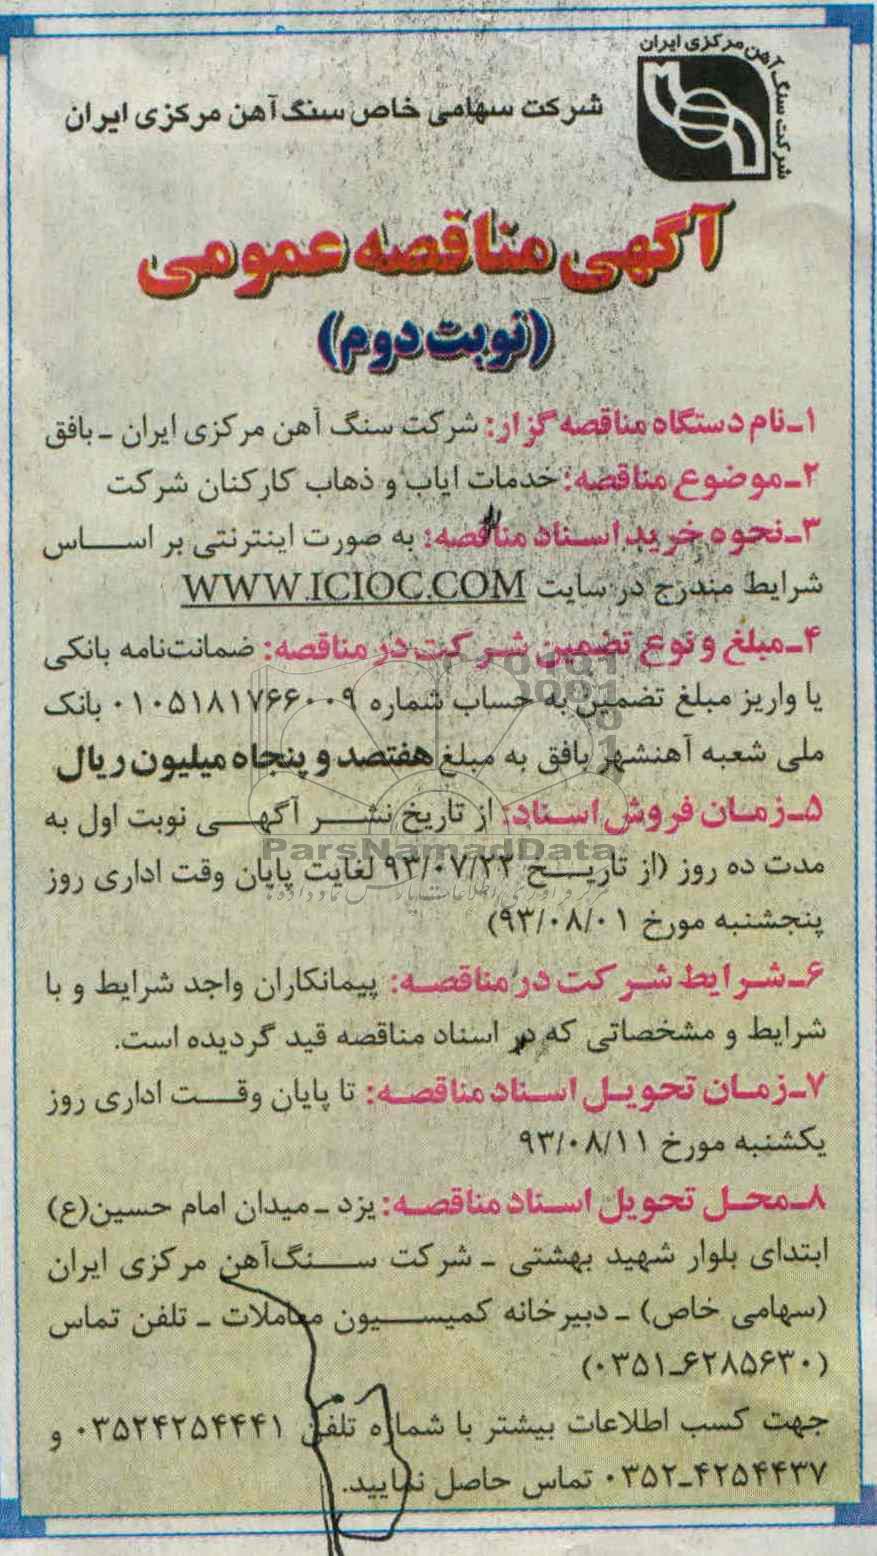 شرکت سنگ آهن مرکزی ایران
شرکت سهامی خاص سنگ آهن مرکزی ایران
آگهی مناقصه عمومی
(نوبت دوم)
۱ـ نام دستگاه مناقصه گزار: شرکت سنگ آهن مرکزی ایران ـ بافق
۲ـ موضوع مناقصه: خدمات ایاب و ذهاب کارکنان شرکت
۳ـ نحوه خرید اسناد مناقصه: به صورت اینترنتی بر اساس
شرایط مندرج در سایت WWW.ICIOC.COM
۴ـ مبلغ و نوع تضمین شرکت در مناقصه: ضمانت‌نامه بانکی
یا واریز مبلغ تضمین به حساب شماره ۰۱۰۵۱۸۱۷۶۶۰۰۹ بانک
ملی شعبه آهنشهر بافق به مبلغ هفتصد و پنجاه میلیون ریال
۵ـ زمان فروش اسناد: از تاریخ نشر آگهی نوبت اول به
مدت ده روز (از تاریخ ۹۳/۰۷/۲۲ لغایت پایان وقت اداری روز
پنجشنبه مورخ ۹۳/۰۸/۰۱)
ParsNamadData
۶ـ شرایط شرکت در مناقصه: پیمانکاران واجد شرایط و با
شرایط و مشخصاتی که در اسناد مناقصه قید گردیده است.
۷ـ زمان تحویل اسناد مناقصه: تا پایان وقت اداری روز
یکشنبه مورخ ۹۳/۰۸/۱۱
۸ـ محل تحویل اسناد مناقصه: یزد ـ میدان امام حسین(ع)
ابتدای بلوار شهید بهشتی ـ شرکت سنگ‌آهن مرکزی ایران
(سهامی خاص) ـ دبیرخانه کمیسیون معاملات ـ تلفن تماس
(۰۳۵۱ـ۶۲۸۵۶۳۰)
جهت کسب اطلاعات بیشتر با شماره تلفن ۰۳۵۲۴۲۵۴۴۴۱ و
۰۳۵۲ـ۴۲۵۴۴۳۷ تماس حاصل نمایید.